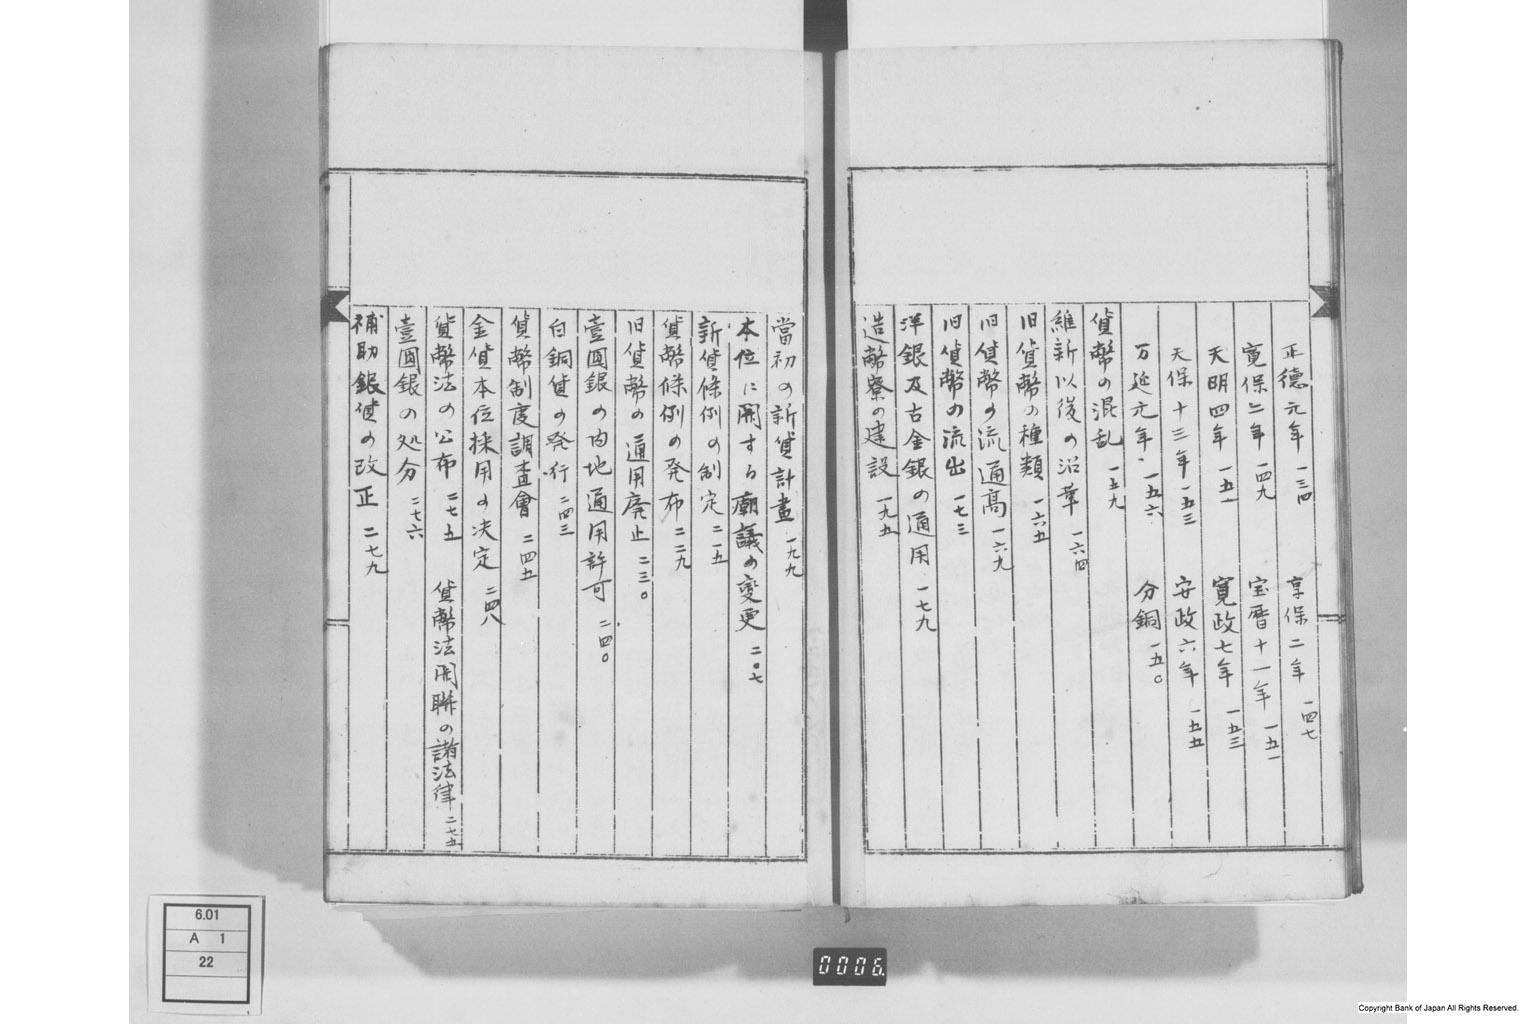 正德元年 一三四 享保二年 一四七
寛保二年 一四九 宝暦十一年 一五一
天明四年 一五一 寛政七年 一五三
天保十三年 一五三 安政六年 一五五
万延元年 一五六 分銅 一五〇
貨幣の混乱 一五九
維新以後の沿革 一六四
旧貨幣の種類 一六五
旧貨幣の流通高 一六九
旧貨幣の流出 一七三
洋銀及古金銀の通用 一七九
造幣寮の建設 一九五
當初の新貨計畫 一九九
本位に関する廟議の変更 二〇七
新貨條例の制定 二一五
貨幣條例の発布 二二九
旧貨幣の通用廃止 二三〇
壹圓銀の内地通用許可 二四〇
白銅貨の発行 二四三
貨幣制度調査會 二四五
金貨本位採用の决定 二四八
貨幣法の公布 二七五 貨幣法関聯の諸法律 二七五
壹圓銀の処分 二七六
補助銀貨の改正 二七九
6.01
A 1
22
0006.
Copyright Bank of Japan All Rights Reserved.